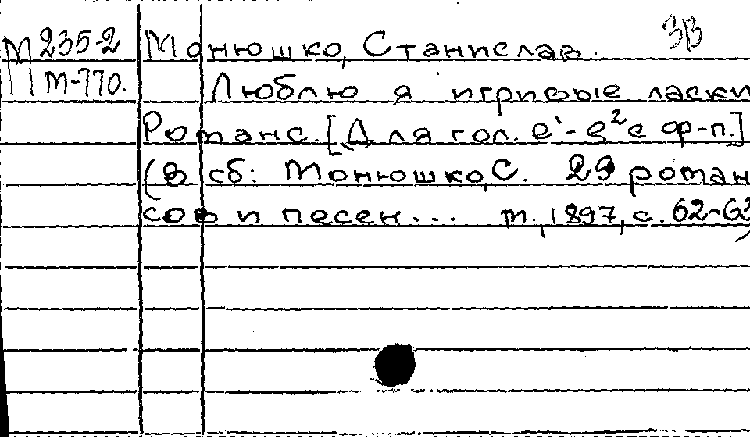 М 235-2 Монюшко, Станислав. 3В
М-770. Люблю я игривые ласки
Романс. [Для гол. e¹-e² с ф-п.]
(В сб: Монюшко, С. 29 роман
сов и песен... м., 1897, с. 62-63)